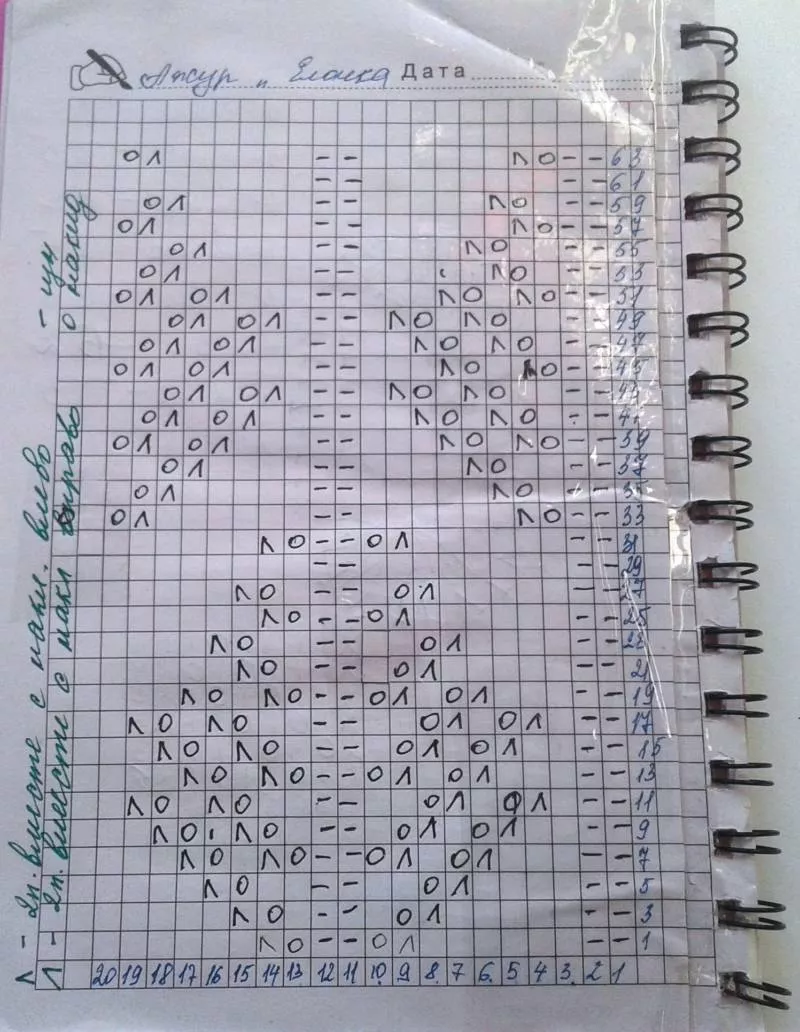 Ажур и Елочка Дата
О Λ - - Λ О - - 63
- - - - 61
О Λ - - Λ О - - 59
О Λ - - Λ О - - 57
О Λ - - Λ О - - 55
О Λ - - Λ О - - 53
О Λ О Λ - - Λ О Λ О - - 51
О Λ О Λ - - Λ О Λ О - - 49
О Λ О Λ - - Λ О Λ О - - 47
О Λ О Λ - - Λ О Λ О - - 45
О Λ О Λ - - Λ О Λ О - - 43
О Λ О Λ - - Λ О Λ О - - 41
О Λ О Λ - - Λ О Λ О - - 39
О Λ - - Λ О - - 37
О Λ - - Λ О - - 35
О Λ - - Λ О - - 33
Λ О - - О Λ - - 31
- - - - 29
Λ О - - О Λ - - 27
Λ О - - О Λ - - 25
Λ О - - О Λ - -
Λ О - - О Λ - - 21
Λ О Λ О - - О Λ О Λ - - 19
Λ О Λ О - - О Λ О Λ - - 17
Λ О Λ О - - О Λ О Λ - - 15
Λ О Λ О - - О Λ О Λ - - 13
Λ О Λ О - - О Λ О Λ - - 11
Λ О Λ О - - О Λ О Λ - - 9
Λ О Λ О - - О Λ О Λ - - 7
Λ О - - О Λ - - 5
Λ О - - О Λ - - 3
Λ О - - О Λ - - 1
20 19 18 17 16 15 14 13 12 11 10. 9 8. 7 6. 5 4 3. 2 1
Λ - 2п. вместе с накл. влево -
Λ - 2п. вместе с накл вправо О накид